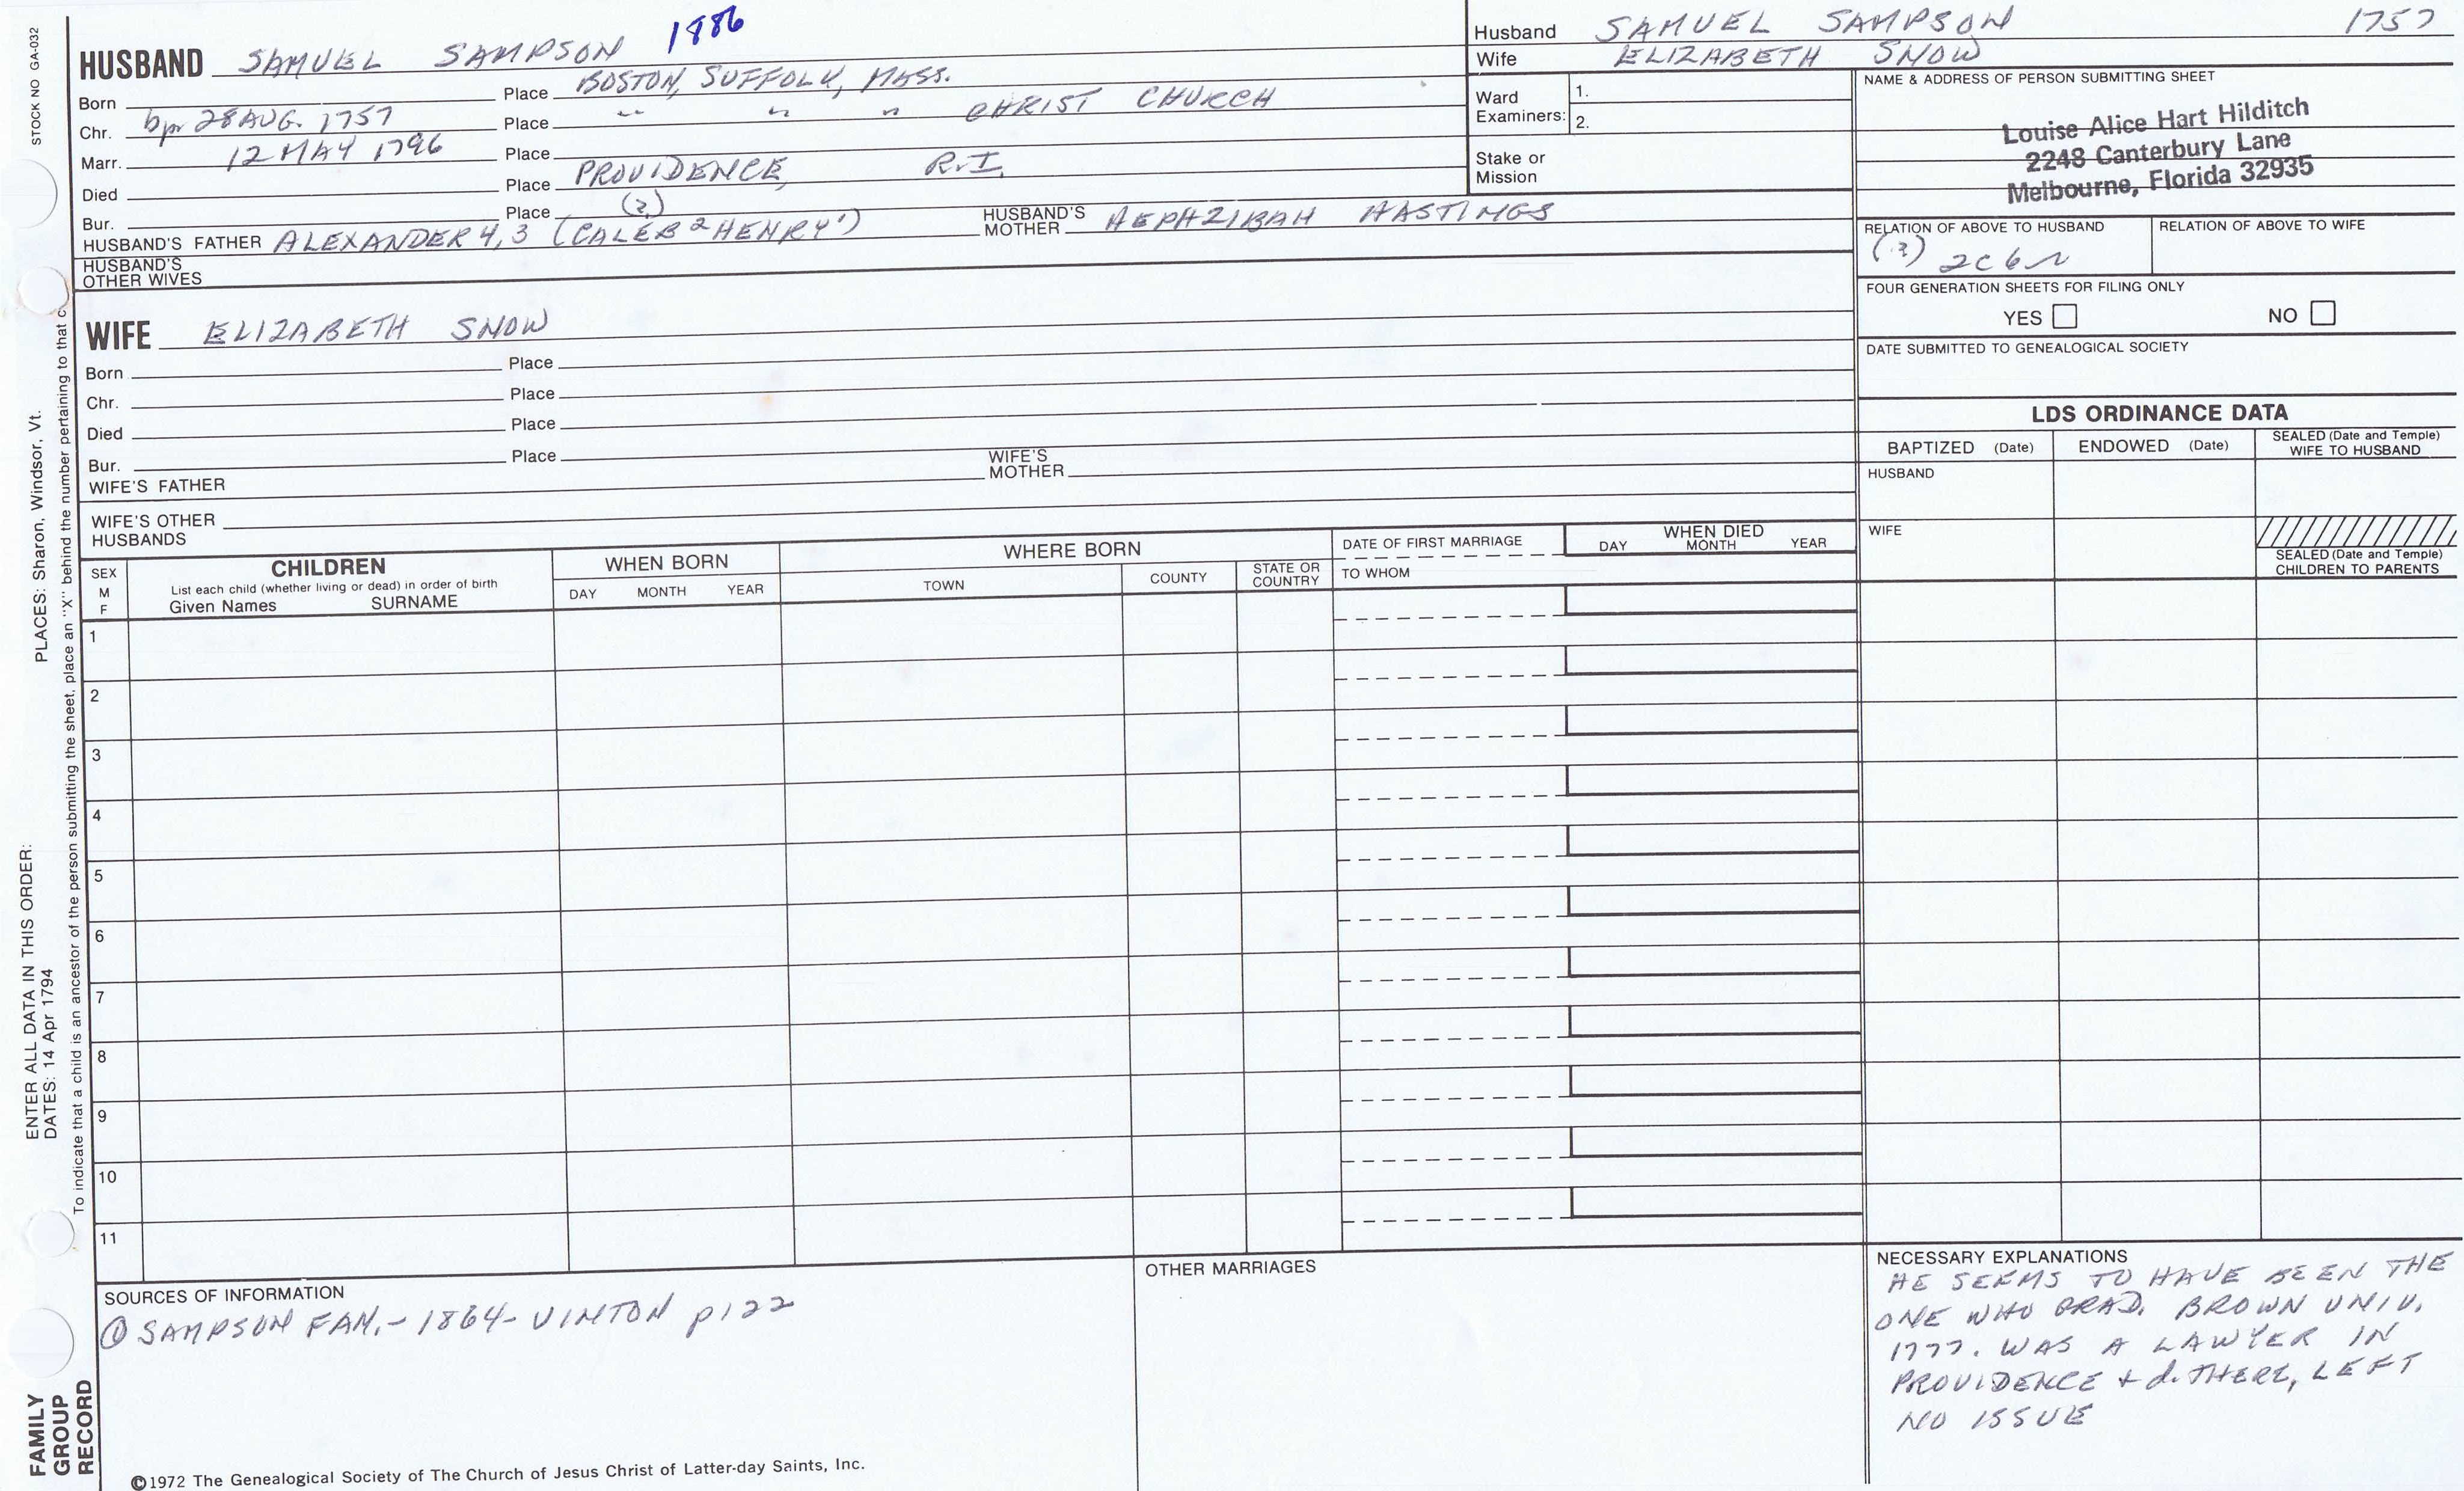 STOCK NO GA-032
PLACES: Sharon, Windsor, Vt.
ENTER ALL DATA IN THIS ORDER:
DATES: 14 Apr 1794
To indicate that a child is an ancestor of the person submitting the sheet, place an "X" behind the number pertaining to that c
FAMILY
GROUP
RECORD
1886
HUSBAND SAMUEL SAMPSON
Born Place BOSTON, SUFFOLK, MASS.
Chr. bp 28 AUG. 1757 Place " " " CHRIST CHURCH
Marr. 12 MAY 1796 Place
Died Place PROVIDENCE, R.I.
Bur. Place (?)
HUSBAND'S FATHER ALEXANDER 4, 3 (CALEB 2 HENRY 1) HUSBAND'S MOTHER HEPHZIBAH HASTINGS
HUSBAND'S
OTHER WIVES
WIFE ELIZABETH SNOW
Born Place
Chr. Place
Died Place
Bur. Place
WIFE'S FATHER WIFE'S MOTHER
WIFE'S OTHER
HUSBANDS
Husband SAMUEL SAMPSON 1757
Wife ELIZABETH SNOW
Ward
Examiners:
1.
2.
Stake or
Mission
NAME & ADDRESS OF PERSON SUBMITTING SHEET
Louise Alice Hart Hilditch
2248 Canterbury Lane
Melbourne, Florida 32935
RELATION OF ABOVE TO HUSBAND RELATION OF ABOVE TO WIFE
(?) 2C6R
FOUR GENERATION SHEETS FOR FILING ONLY
YES NO
DATE SUBMITTED TO GENEALOGICAL SOCIETY
LDS ORDINANCE DATA
BAPTIZED (Date) ENDOWED (Date) SEALED (Date and Temple)
WIFE TO HUSBAND
HUSBAND
WIFE
SEALED (Date and Temple)
CHILDREN TO PARENTS
SEX
M
F
CHILDREN
List each child (whether living or dead) in order of birth
Given Names SURNAME
WHEN BORN
DAY MONTH YEAR
WHERE BORN
TOWN COUNTY STATE OR
COUNTRY
DATE OF FIRST MARRIAGE
TO WHOM
WHEN DIED
DAY MONTH YEAR
1
2
3
4
5
6
7
8
9
10
11
SOURCES OF INFORMATION
① SAMPSON FAM. - 1864 - VINTON p122
OTHER MARRIAGES
NECESSARY EXPLANATIONS
HE SEEMS TO HAVE BEEN THE
ONE WHO GRAD. BROWN UNIV.
1777. WAS A LAWYER IN
PROVIDENCE + d. THERE, LEFT
NO ISSUE
©1972 The Genealogical Society of The Church of Jesus Christ of Latter-day Saints, Inc.